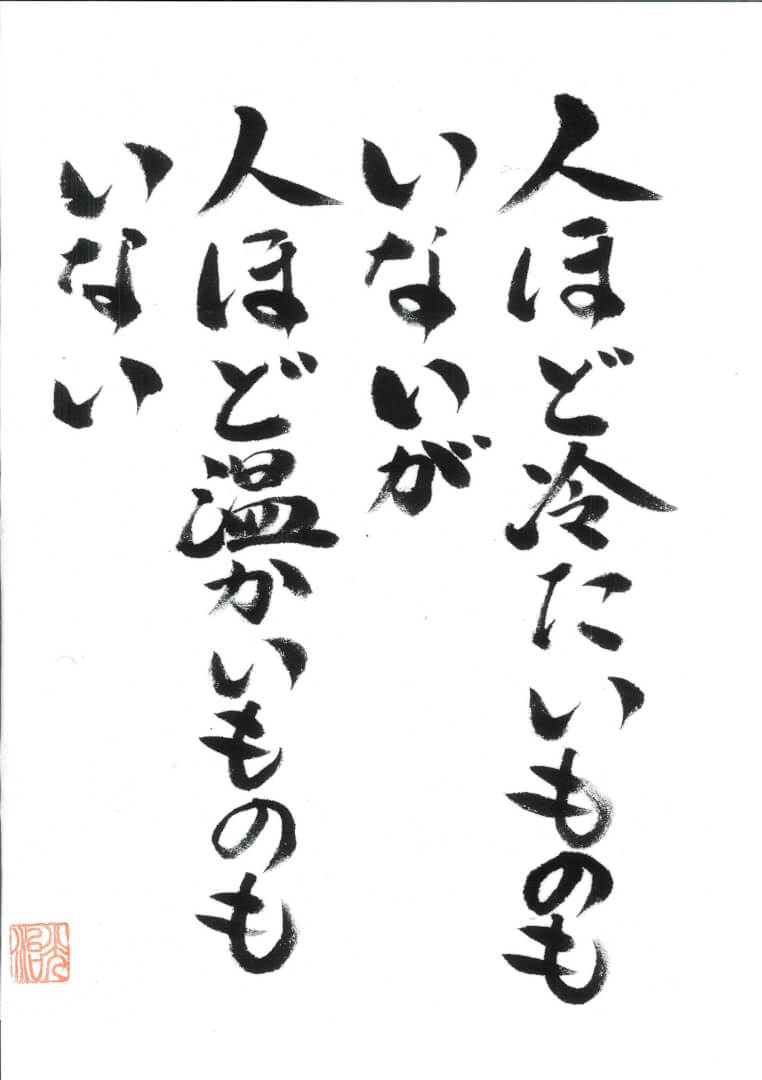 人ほど冷たいものも
いないが
人ほど温かいものも
いない